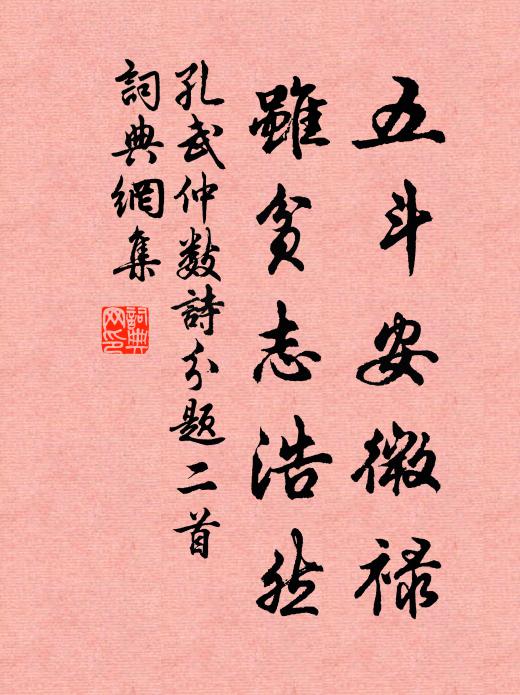 五斗安微禄
雖貧志浩然
孔武仲数詩分題二首
詞典網集
詞典网印